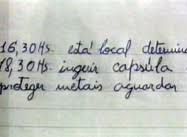 16,30Hs. está local determin
18,30Hs. ingerir capsúla
proteger metais aguardar